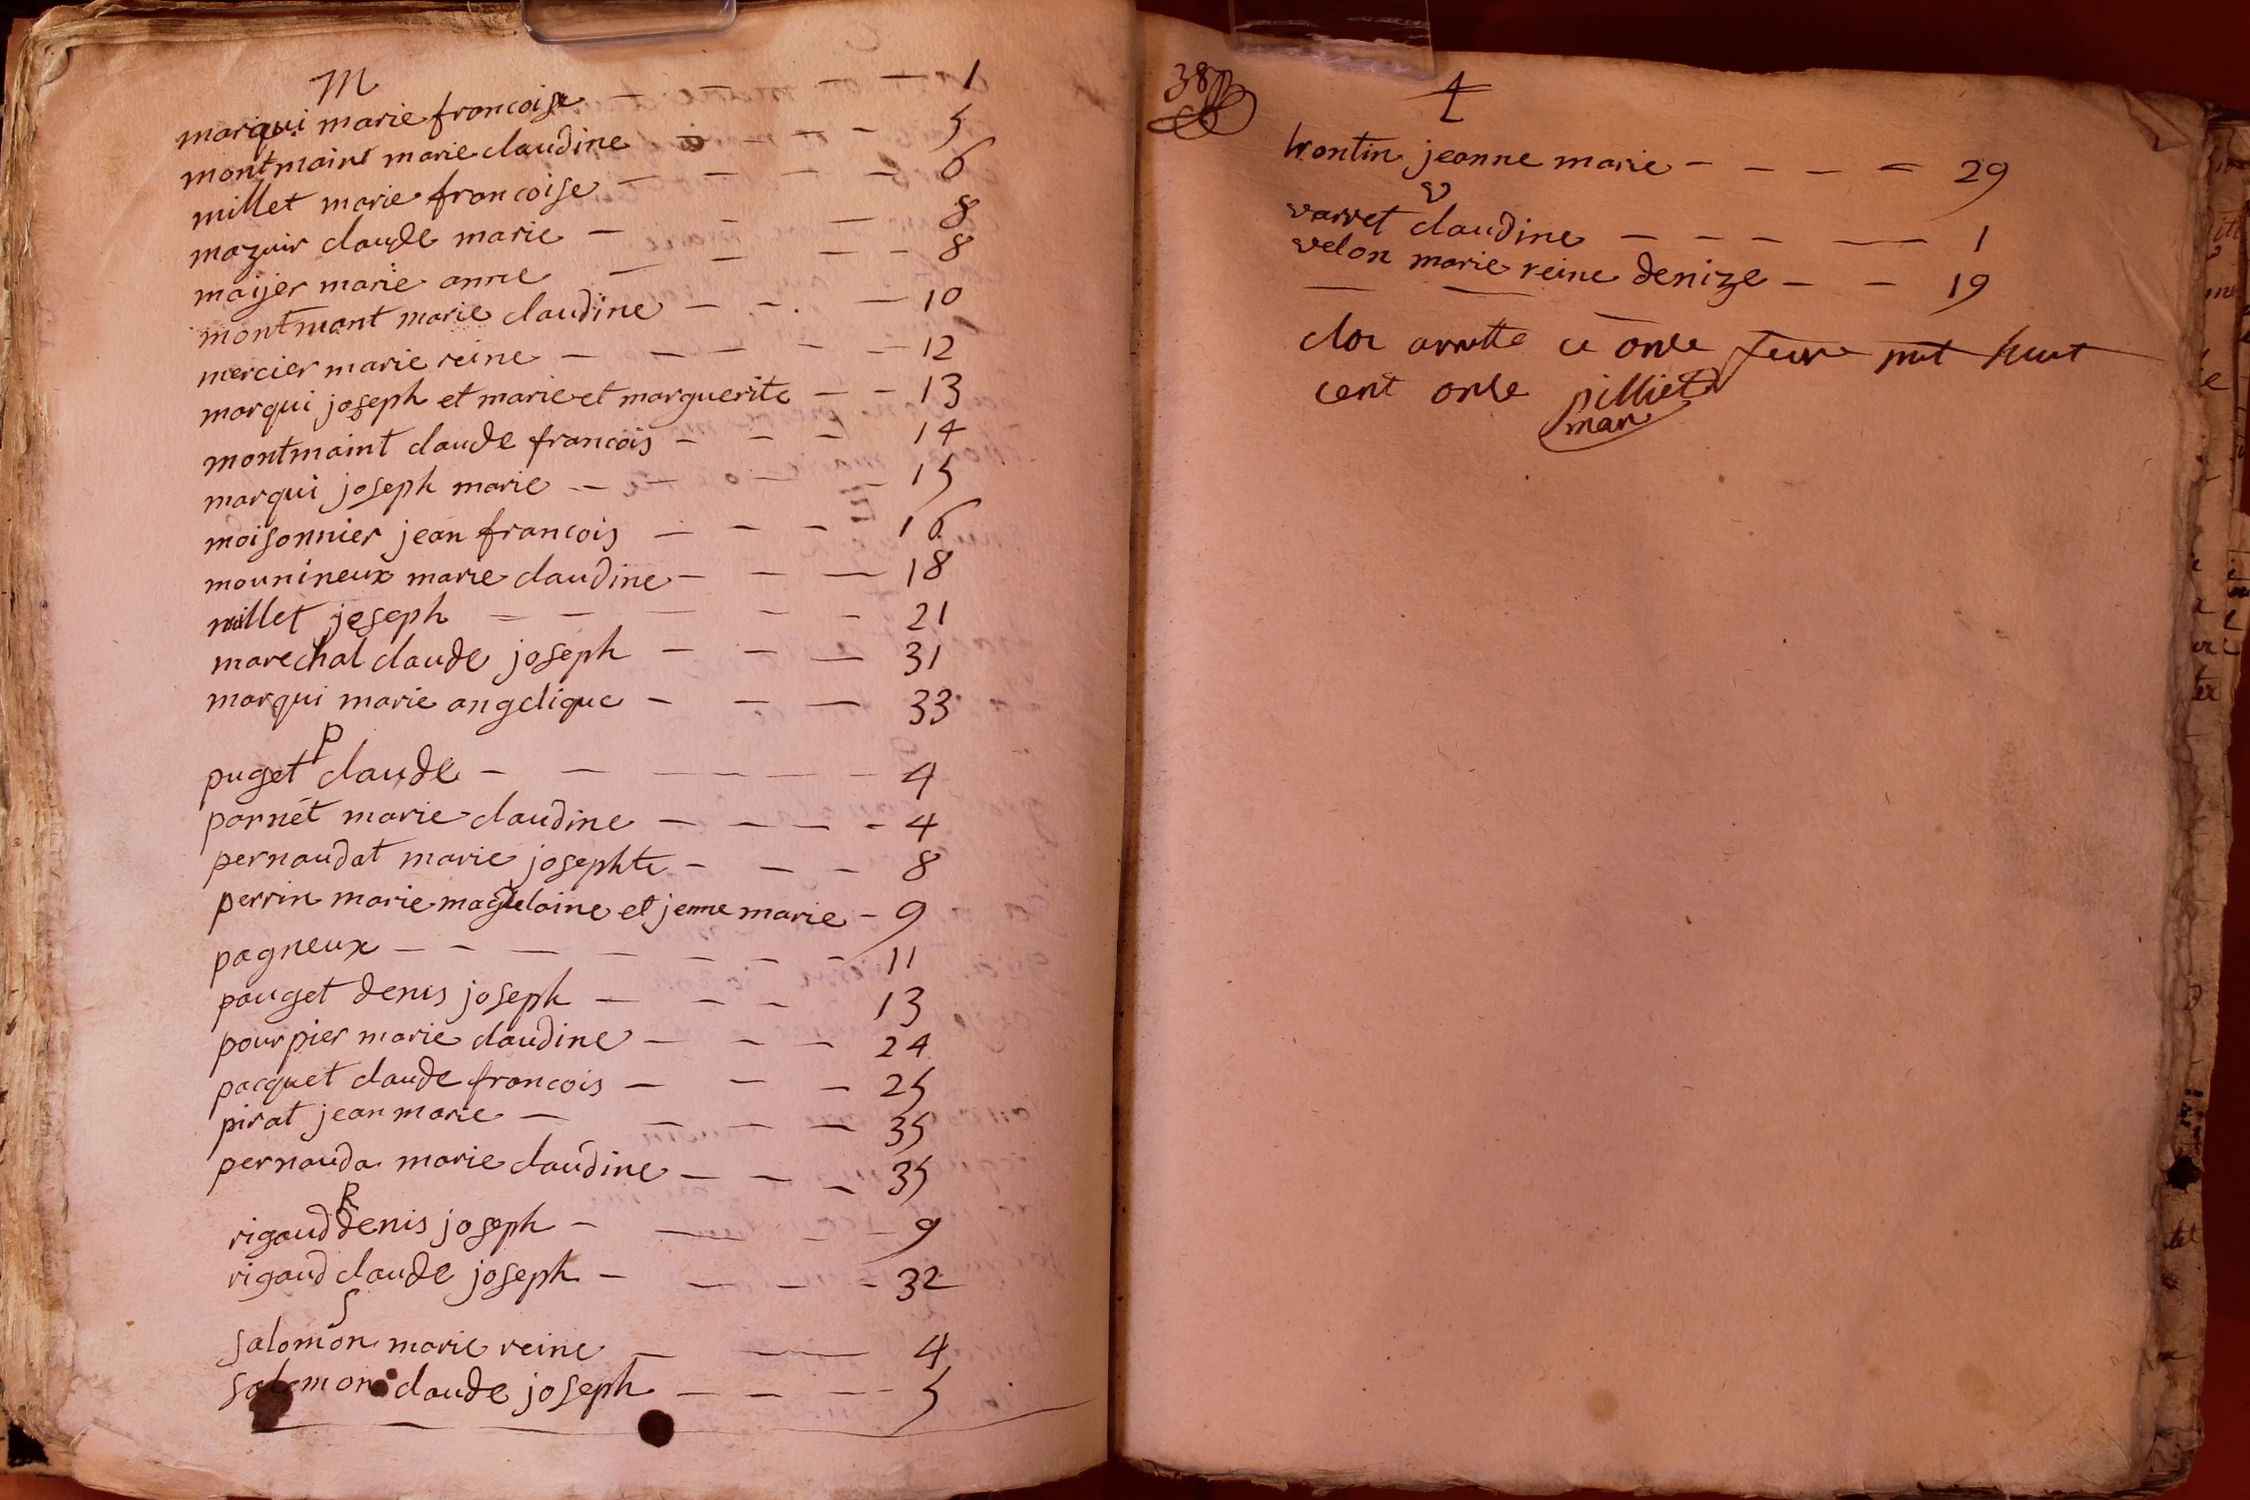 M
marqui marie francoise 1
montmaint marie claudine 5
millet marie francoise 6
mazuir claude marie 8
maijer marie anne 8
montmant marie claudine 10
mercier marie reine 12
marqui joseph et marie et marguerite 13
montmaint claude francois 14
marqui joseph marie 15
moisonnier jean francois 16
mounineux marie claudine 18
millet joseph 21
marechal claude joseph 31
marqui marie angelique 33
P
puget claude 4
parnét marie claudine 4
pernaudat marie josephte 8
perrin marie magdelaine et jenne marie 9
pagneux 11
pouget denis joseph 13
pourpier marie claudine 24
pacquet claude francois 25
pirat jean marie 35
pernauda marie claudine 35
R
rigaud denis joseph 9
rigaud claude joseph 32
S
salomon marie reine 4
salomon claude joseph 5
38
trontin jeanne marie 29
v
varret claudine 1
velon marie reine denize 19
clos arrette ce onze mit huit
cent onze pilliet